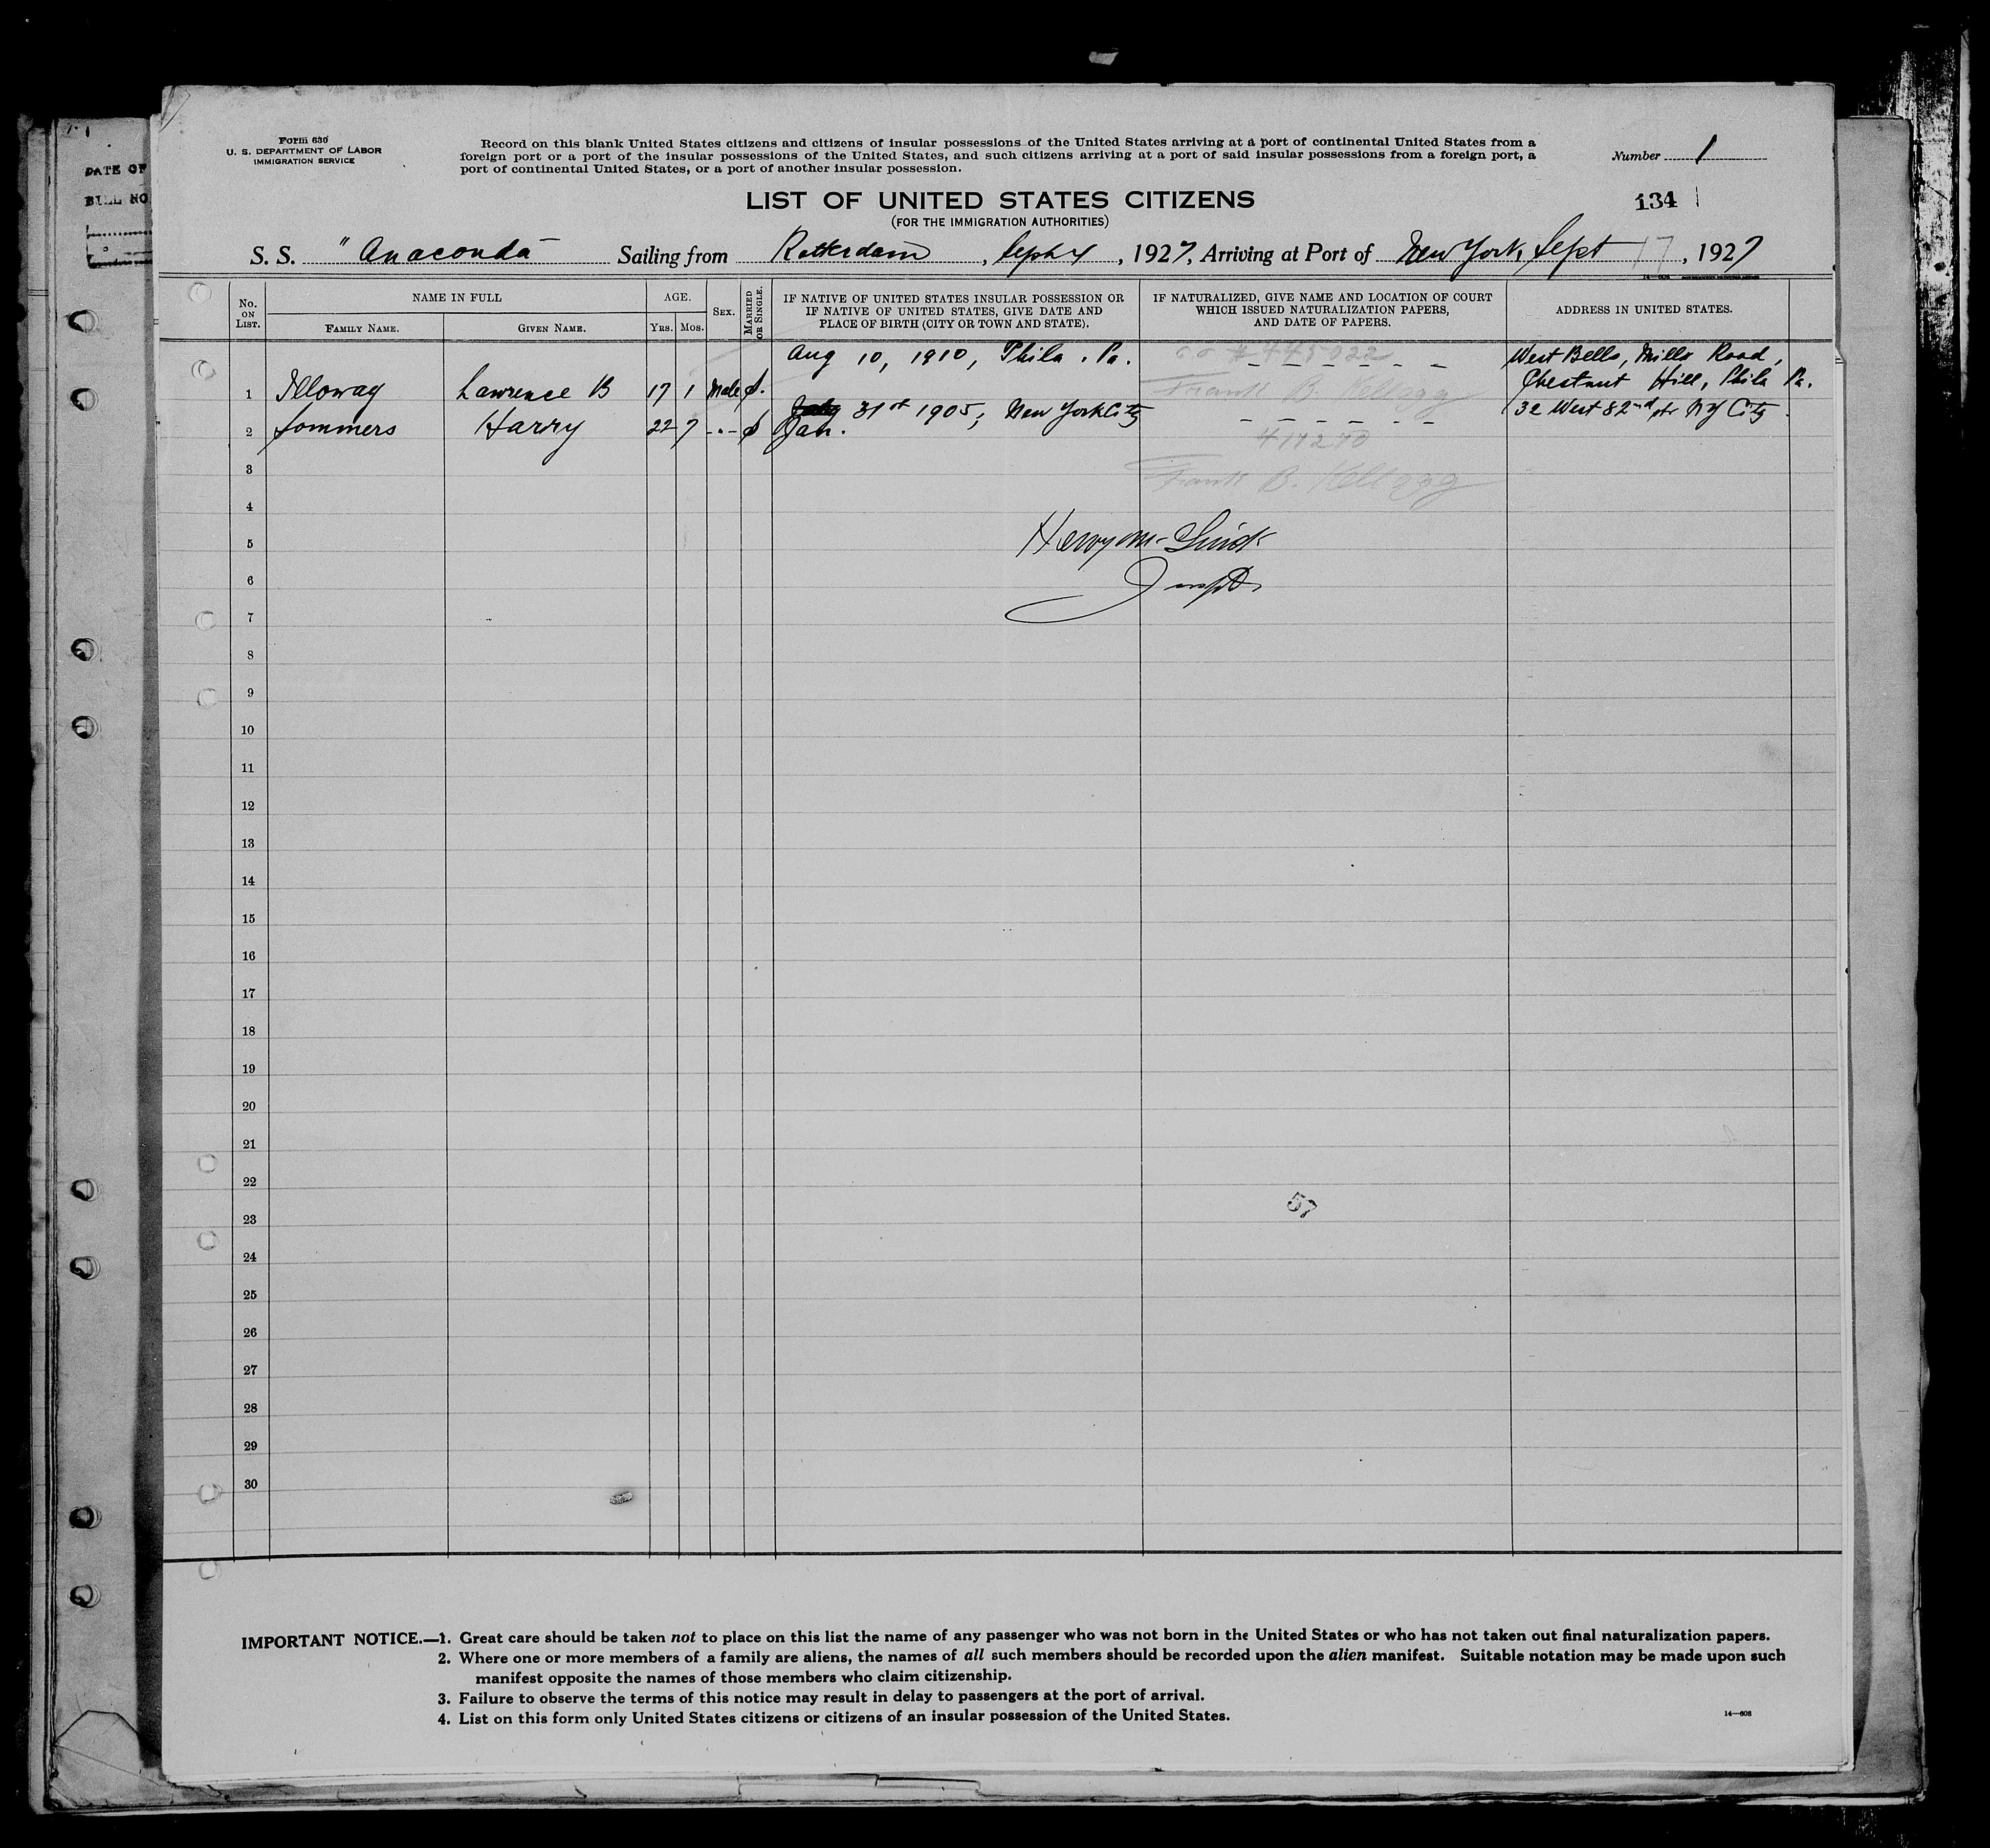 Form 630
U. S. DEPARTMENT OF LABOR
IMMIGRATION SERVICE
Record on this blank United States citizens and citizens of insular possessions of the United States arriving at a port of continental United States from a
foreign port or a port of the insular possessions of the United States, and such citizens arriving at a port of said insular possessions from a foreign port, a
port of continental United States, or a port of another insular possession.
Number 1
DATE OF
BILL NO
LIST OF UNITED STATES CITIZENS
134
(FOR THE IMMIGRATION AUTHORITIES)
S. S. "Anaconda" Sailing from Rotterdam, Sept 4, 1927, Arriving at Port of New York, Sept 17, 1927
No. ON LIST.
NAME IN FULL
FAMILY NAME.
GIVEN NAME.
AGE.
YRS. MOS.
SEX.
MARRIED OR SINGLE.
IF NATIVE OF UNITED STATES INSULAR POSSESSION OR
IF NATIVE OF UNITED STATES, GIVE DATE AND
PLACE OF BIRTH (CITY OR TOWN AND STATE).
IF NATURALIZED, GIVE NAME AND LOCATION OF COURT
WHICH ISSUED NATURALIZATION PAPERS,
AND DATE OF PAPERS.
ADDRESS IN UNITED STATES.
1 Illoway Lawrence B 17 1 Male S. Aug 10, 1910, Phila. Pa. # 445022 Frank B. Kellogg West Bells, Mills Road,
Chestnut Hill, Phila Pa.
2 Sommers Harry 22 7 -"- S Jan. 31st 1905, New York City 32 West 82nd str NY City
417270
Frank B. Kellogg
3
4
5
Inspt
6
7
8
9
10
11
12
13
14
15
16
17
18
19
20
21
22
57
23
24
25
26
27
28
29
30
IMPORTANT NOTICE.—1. Great care should be taken not to place on this list the name of any passenger who was not born in the United States or who has not taken out final naturalization papers.
2. Where one or more members of a family are aliens, the names of all such members should be recorded upon the alien manifest. Suitable notation may be made upon such
manifest opposite the names of those members who claim citizenship.
3. Failure to observe the terms of this notice may result in delay to passengers at the port of arrival.
4. List on this form only United States citizens or citizens of an insular possession of the United States.
14—608